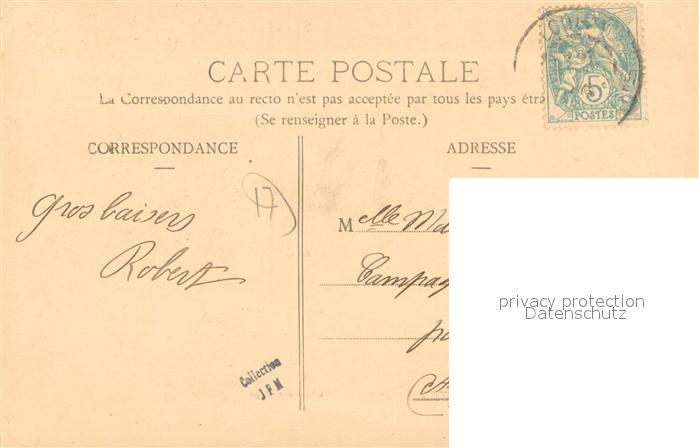 CARTE POSTALE
La Correspondance au recto n'est pas acceptée par tous les pays étra
(Se renseigner à la Poste.)
CORRESPONDANCE
ADRESSE
5c
POSTES
17
Gros baisers
Robert
Melle Ma
Campag
Collection
JPM
privacy protection
Datenschutz